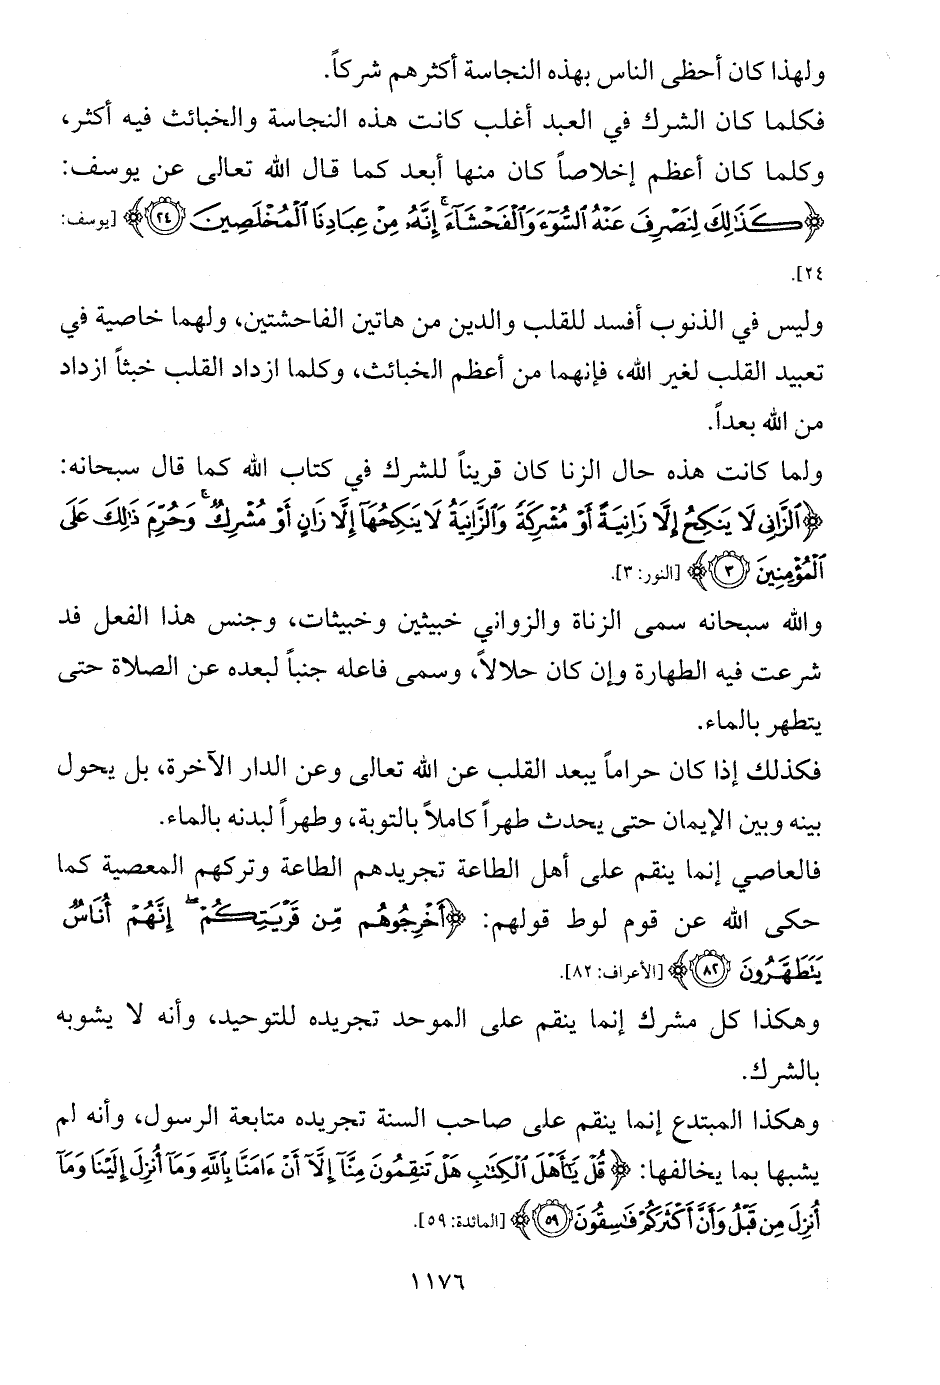 ولهذا كان أحظى الناس بهذه النجاسة أكثرهم شركاً.
فكلما كان الشرك في العبد أغلب كانت هذه النجاسة والخبائث فيه أكثر،
وكلما كان أعظم إخلاصاً كان منها أبعد كما قال الله تعالى عن يوسف:
﴿كَذَٰلِكَ لِنَصْرِفَ عَنْهُ السُّوٓءَ وَالْفَحْشَآءَۚ إِنَّهُۥ مِنْ عِبَادِنَا الْمُخْلَصِينَ ﴿٢٤﴾﴾ [يوسف:
٢٤].
وليس في الذنوب أفسد للقلب والدين من هاتين الفاحشتين، ولهما خاصية في
تعبيد القلب لغير الله، فإنهما من أعظم الخبائث، وكلما ازداد القلب خبثاً ازداد
من الله بعداً.
ولما كانت هذه حال الزنا كان قريناً للشرك في كتاب الله كما قال سبحانه:
﴿الزَّانِى لَا يَنكِحُ إِلَّا زَانِيَةً أَوْ مُشْرِكَةً وَالزَّانِيَةُ لَا يَنكِحُهَآ إِلَّا زَانٍ أَوْ مُشْرِكٌۚ وَحُرِّمَ ذَٰلِكَ عَلَى
الْمُؤْمِنِينَ ﴿٣﴾﴾ [النور: ٣].
والله سبحانه سمى الزناة والزواني خبيثين وخبيثات، وجنس هذا الفعل قد
شرعت فيه الطهارة وإن كان حلالاً، وسمى فاعله جنباً لبعده عن الصلاة حتى
يتطهر بالماء.
فكذلك إذا كان حراماً يبعد القلب عن الله تعالى وعن الدار الآخرة، بل يحول
بينه وبين الإيمان حتى يحدث طهراً كاملاً بالتوبة، وطهراً لبدنه بالماء.
فالعاصي إنما ينقم على أهل الطاعة تجريدهم الطاعة وتركهم المعصية كما
حكى الله عن قوم لوط قولهم: ﴿أَخْرِجُوهُم مِّن قَرْيَتِكُمْۖ إِنَّهُمْ أُنَاسٌ
يَتَطَهَّرُونَ ﴿٨٢﴾﴾ [الأعراف: ٨٢].
وهكذا كل مشرك إنما ينقم على الموحد تجريده للتوحيد، وأنه لا يشوبه
بالشرك.
وهكذا المبتدع إنما ينقم على صاحب السنة تجريده متابعة الرسول، وأنه لم
يشبها بما يخالفها: ﴿قُلْ يَٰٓأَهْلَ الْكِتَٰبِ هَلْ تَنقِمُونَ مِنَّآ إِلَّآ أَنْ ءَامَنَّا بِاللَّهِ وَمَآ أُنزِلَ إِلَيْنَا وَمَآ
أُنزِلَ مِن قَبْلُ وَأَنَّ أَكْثَرَكُمْ فَٰسِقُونَ ﴿٥٩﴾﴾ [المائدة: ٥٩].
١١٧٦